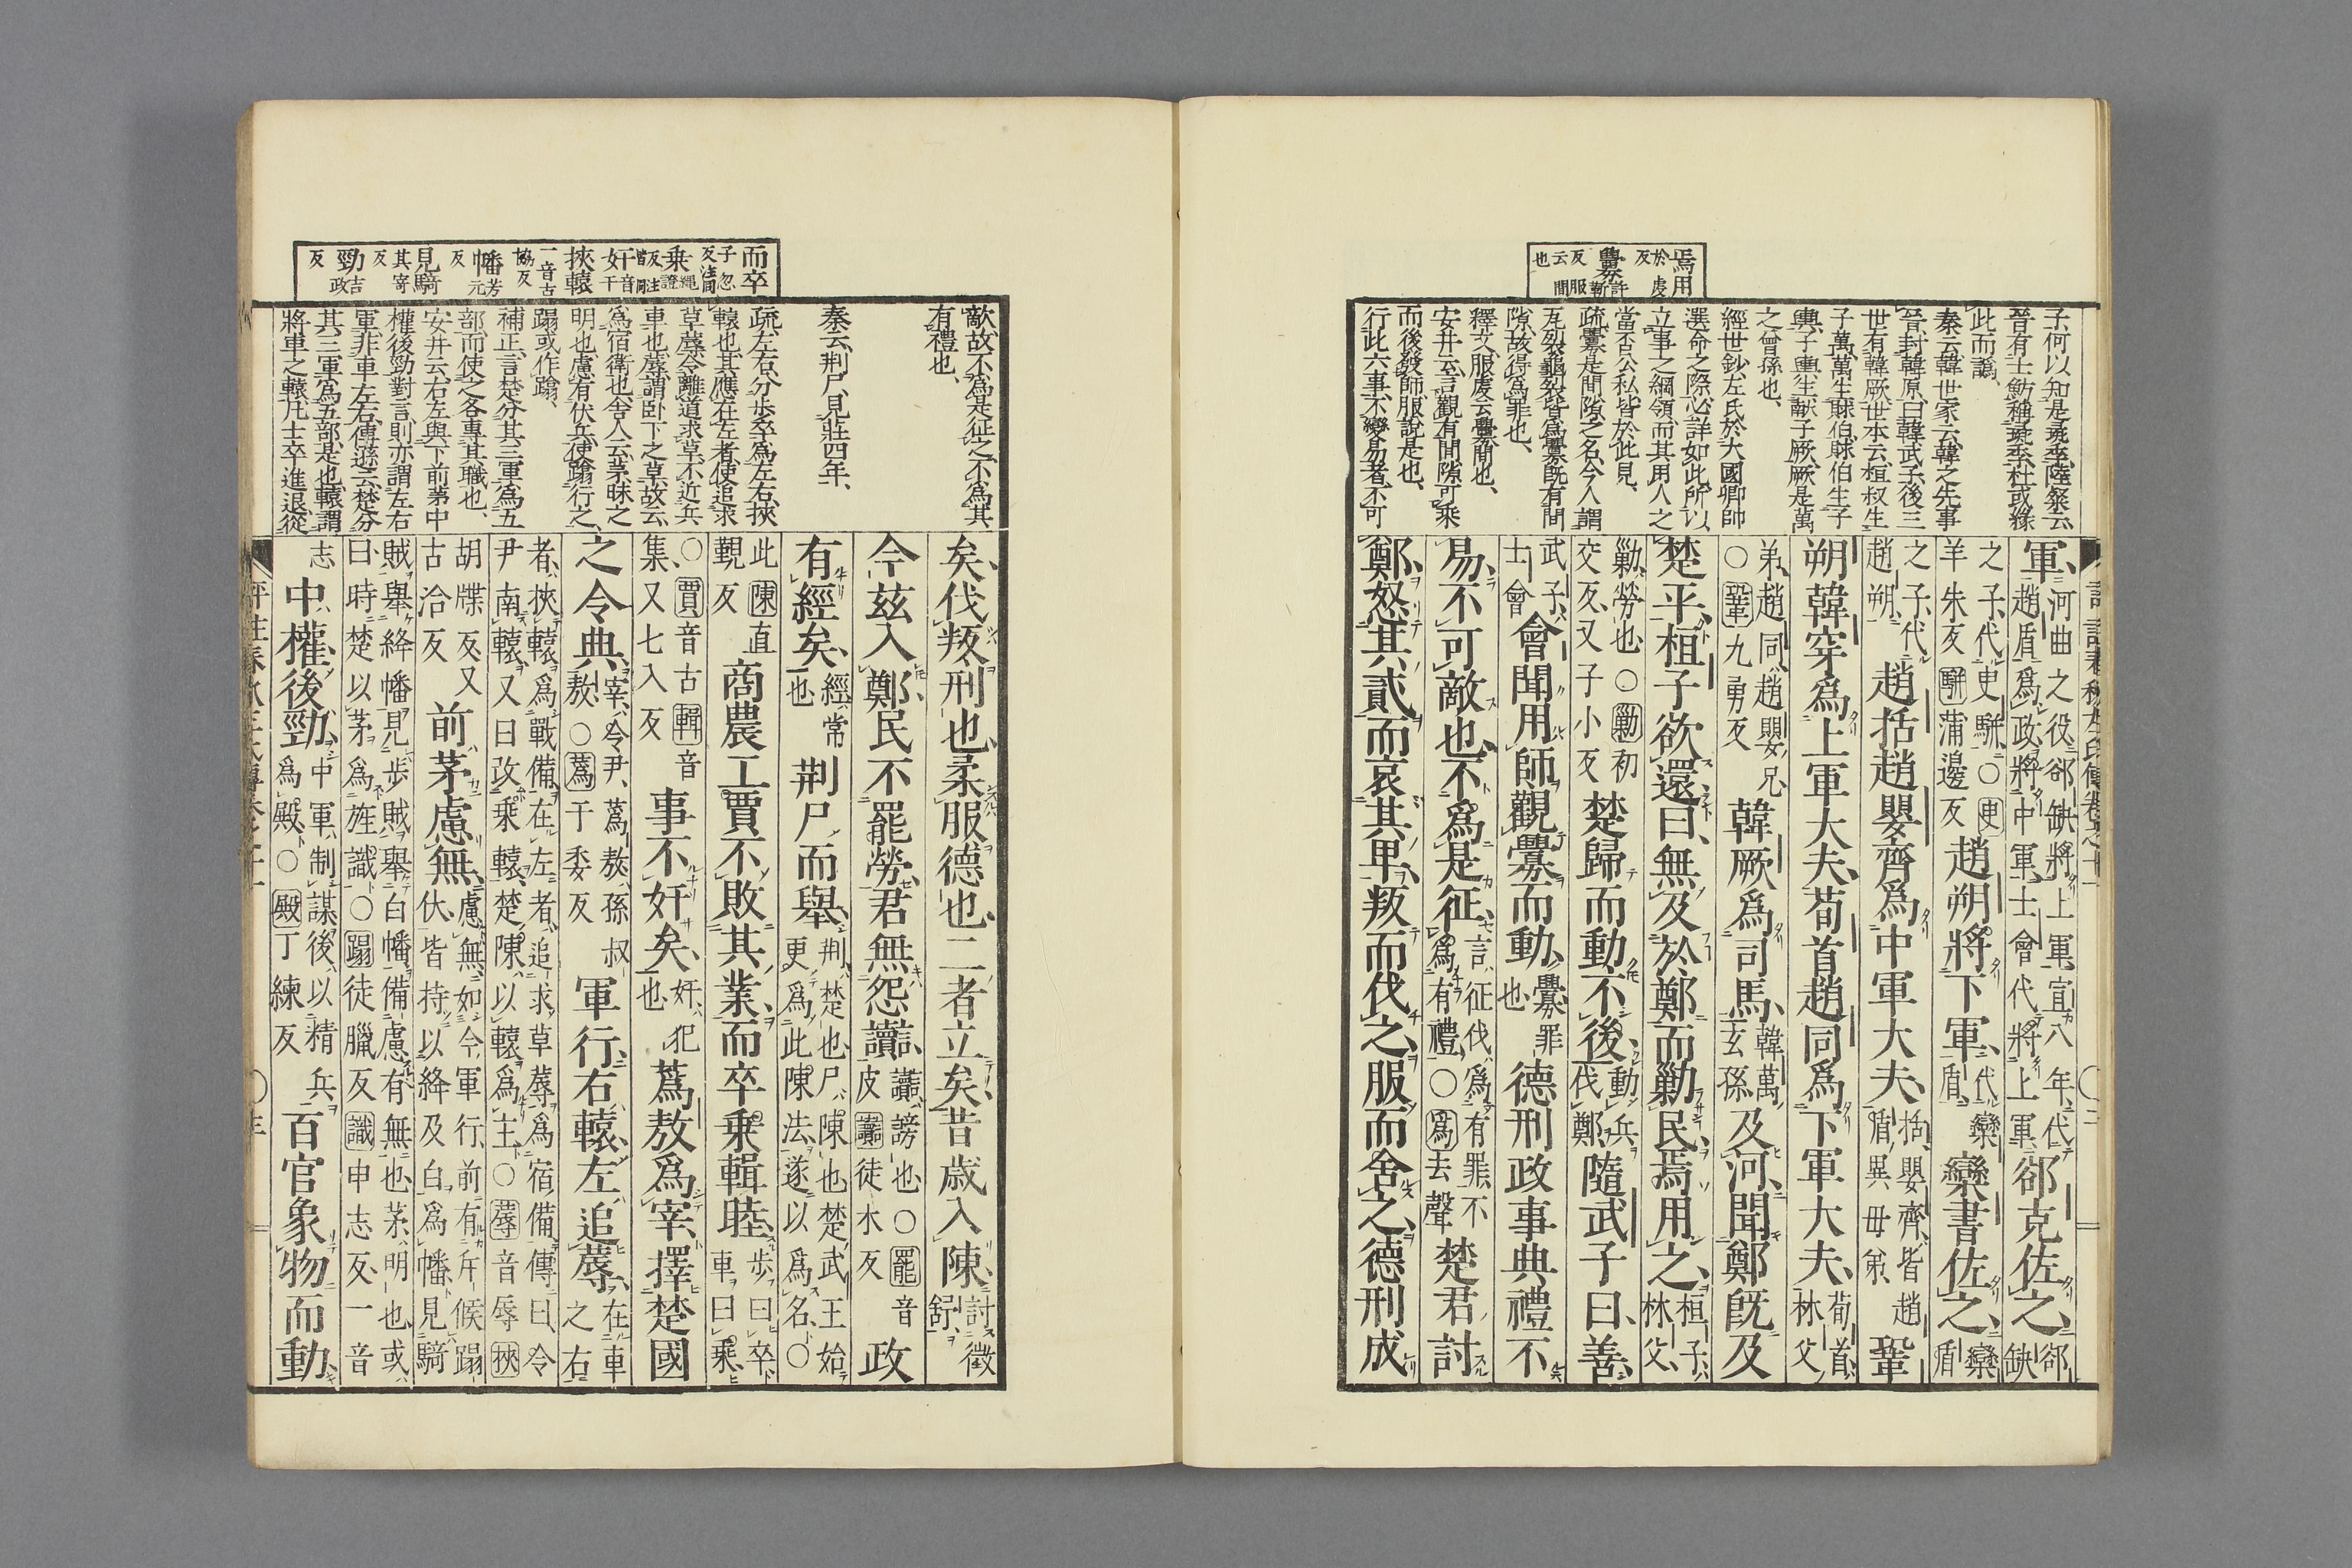 焉用 於虔反 釁 許靳反 服云間也
子何以知是彘季陸粲云
晉有士魴稱彘季杜或緣
此而譌、
秦云韓世家云韓之先事
晉封韓原曰韓武子後三
世有韓厥世本云桓叔生
子萬萬生賕伯賕伯生子
輿子輿生獻子厥厥是萬
之曾孫也、
經世鈔左氏於大國卿帥
選命之際必詳如此所以
立事之綱領而其用人之
當否公私皆於此見、
疏釁是間隙之名今人謂
瓦裂龜裂皆爲釁旣有間
隙故得爲罪也、
釋文服虔云釁間也、
安井云言觀有間隙可乘
而後發師服說是也、
行此六事不變易者不可
軍、河曲之役郤缺將上軍宣八年代趙盾爲政將中軍士會代將上軍郤克佐之、郤缺
之子代臾駢○臾羊朱反駢蒲邊反趙朔將下軍、代欒盾欒書佐之、欒盾
之子代趙朔趙括趙嬰齊爲中軍大夫、括嬰齊皆趙盾異母弟鞏
朔韓穿爲上軍大夫、荀首趙同爲下軍大夫、荀首林父
弟趙同趙嬰兄○鞏九勇反韓厥爲司馬、韓萬玄孫及河、聞鄭旣及
楚平、桓子欲還、曰、無及於鄭而勦民、焉用之、桓子林父
勦勞也○勦初交反又子小反楚歸而動、不後、動兵伐鄭隨武子曰、善、
武子士會會聞用師觀釁而動、釁罪也德刑政事典禮不
易、不可敵也、不爲是征、言征伐爲有罪不爲有禮○爲去聲楚君討
鄭、怒其貳而哀其卑、叛而伐之、服而舍之、德刑成
評註春秋左氏傳卷之十一
而卒 子忽反注同 乘 繩證反注皆同 奸 音干 挾轅 一音古協反 幡 芳元反 見騎 其寄反 勁 吉政反
敵故不爲是征之不爲其
有禮也、
秦云荆尸見莊四年、
疏左右分步卒爲左右挾
轅也其應在左者使追求
草蓐令離道求草不近兵
車也蓐謂卧下之草故云
爲宿衛也舍人云茅昧之
明也慮有伏兵使蹹行之
蹋或作蹹、
補正言楚分其三軍爲五
部而使之各專其職也、
安井云右左與下前茅中
權後勁對言則亦謂左右
軍非車左右傅遜云楚分
其三軍爲五部是也轅謂
將車之轅凡士卒進退從
矣、伐叛刑也、柔服德也、二者立矣、昔歲入陳、討徵舒
今茲入鄭、民不罷勞、君無怨讟、讟謗也○罷音皮讟徒木反政
有經矣、經常也荆尸而舉、荆楚也尸陳也楚武王始更爲此陳法遂以爲名○
此陳直覲反商農工賈不敗其業、而卒乘輯睦、步曰卒車曰乘
○賈音古輯音集又七入反事不奸矣、奸犯也蔿敖爲宰、擇楚國
之令典、宰令尹蔿敖孫叔敖○蔿于委反軍行、右轅、左追蓐、在車之右
者挾轅爲戰備在左者追求草蓐爲宿備傳曰令尹南轅又曰改乘轅楚陳以轅爲主○蓐音辱挾
胡牒反又古洽反前茅慮無、慮無如今軍行前有斥候蹋伏皆持以絳及白爲幡見騎
賊舉絳幡見步賊舉白幡備慮有無也茅明也或曰時楚以茅爲旌識○蹋徒臘反識申志反一音
志中權、後勁、中軍制謀後以精兵爲殿○殿丁練反百官象物而動、
評註春秋左氏傳卷之十一